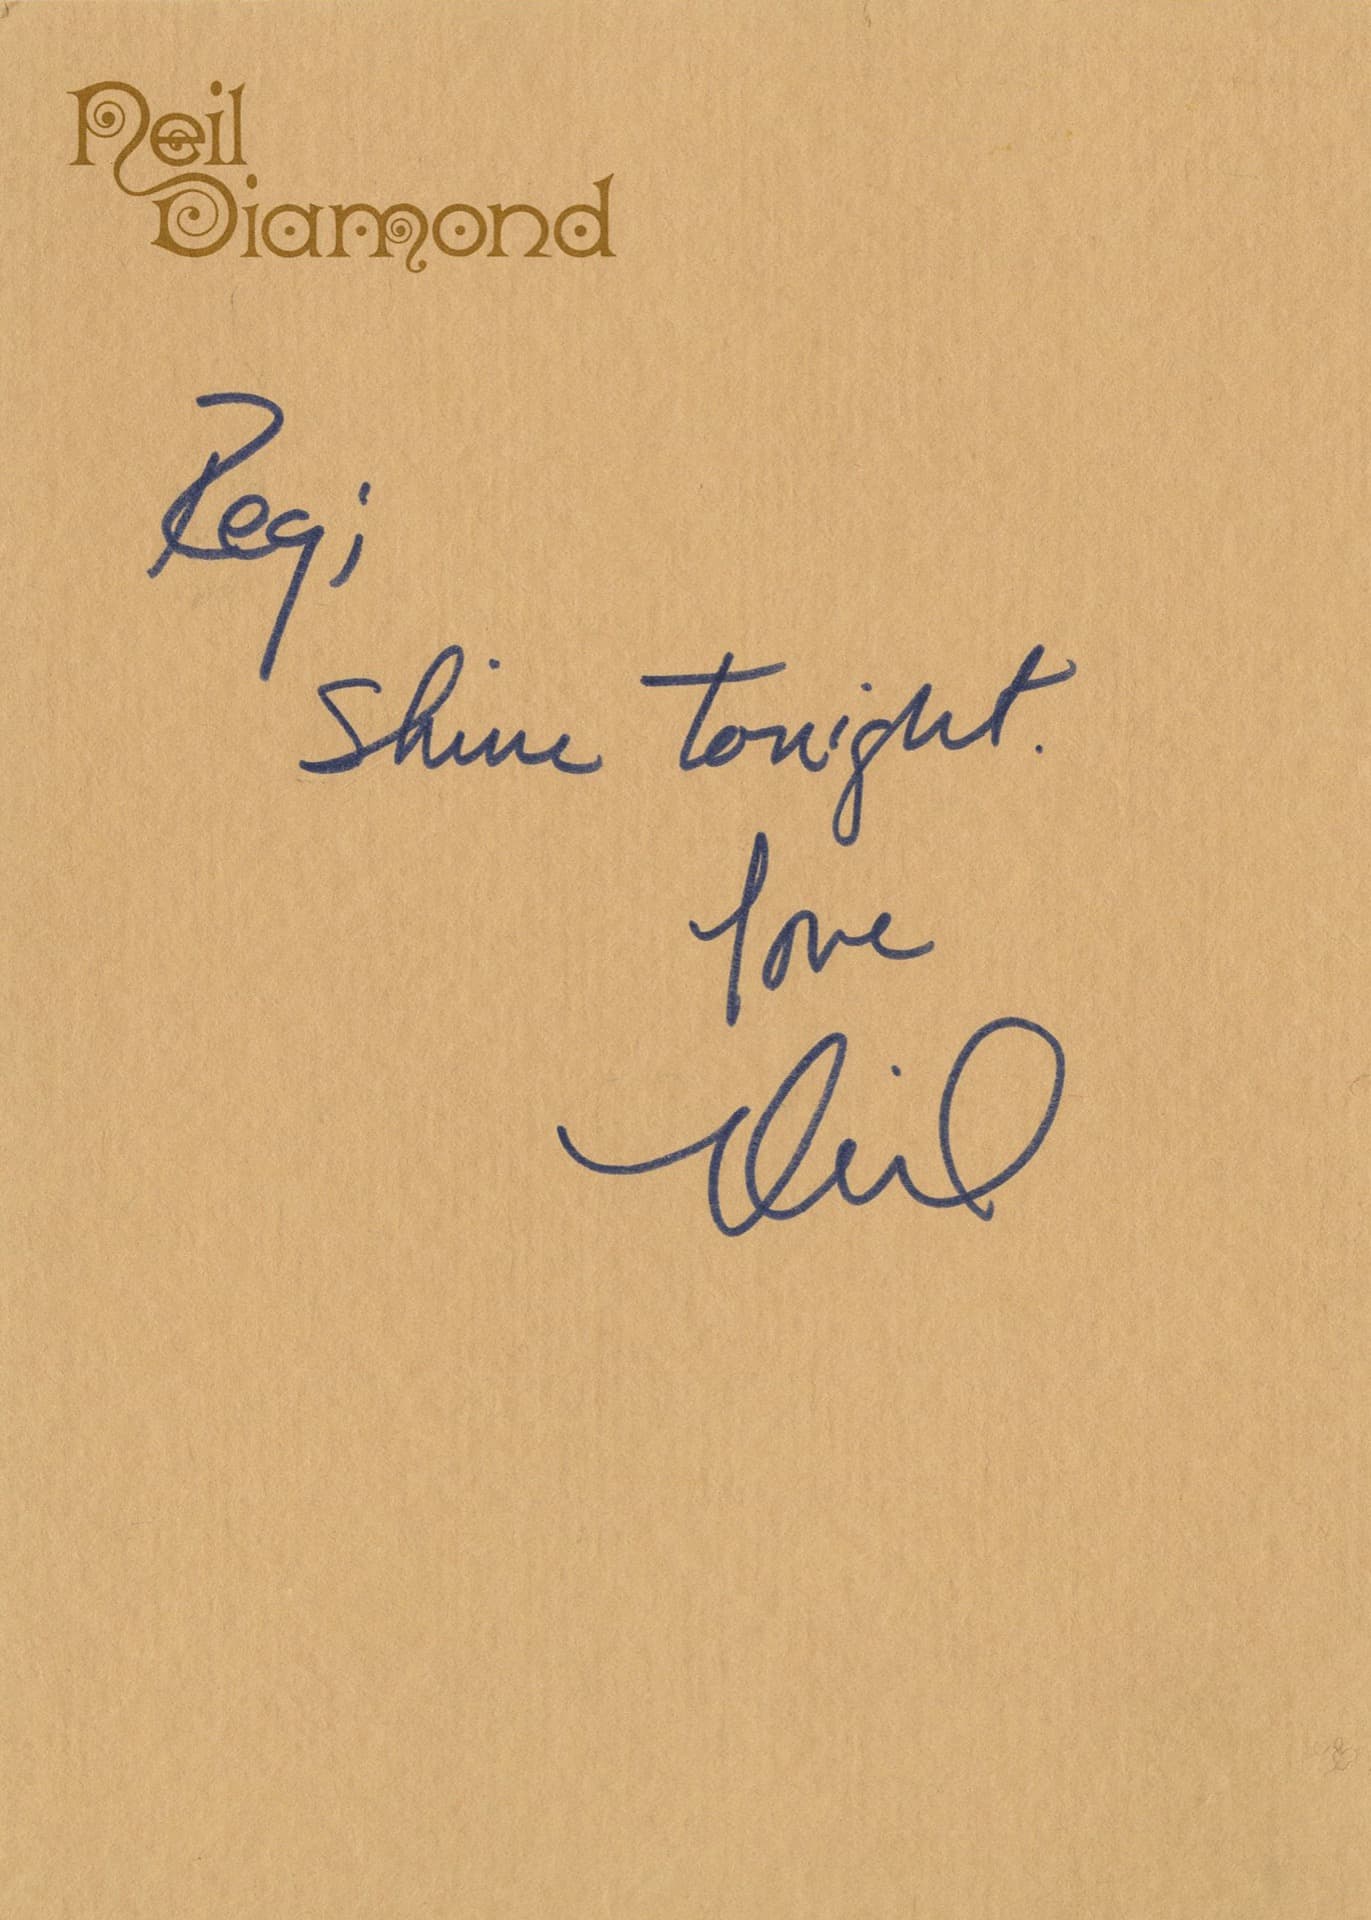 Neil
Diamond
Regi
Shine tonight.
love
Neil